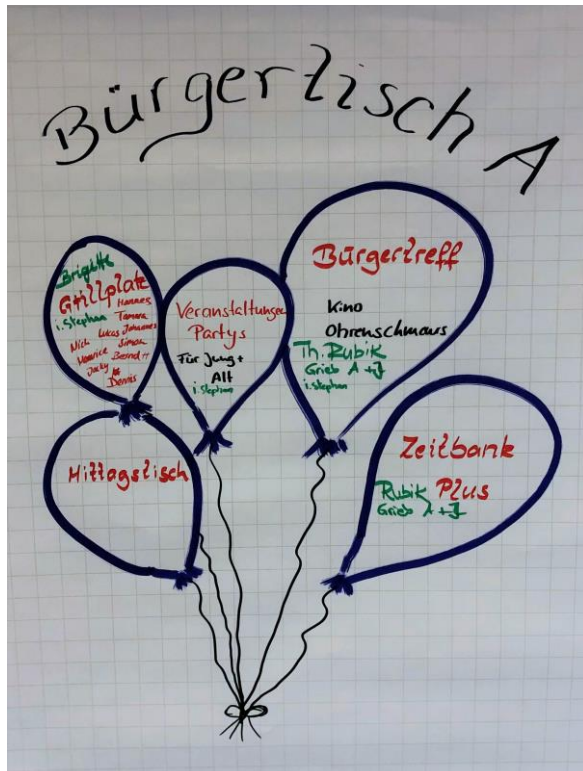 Bürgertisch A
Brigitte
Grillplatz
Hannes
i. Stephan Tamara
Lucas Johannes
Mich Simon
Maurice Bernd
Jacky
Dennis
Veranstaltungen
Partys
Für Jung +
Alt
i. Stephan
Bürgertreff
Kino
Ohrenschmaus
Th. Rubik
Grieb A + J
i. Stephan
Mittagstisch
Zeitbank
Rubik Plus
Grieb A + J